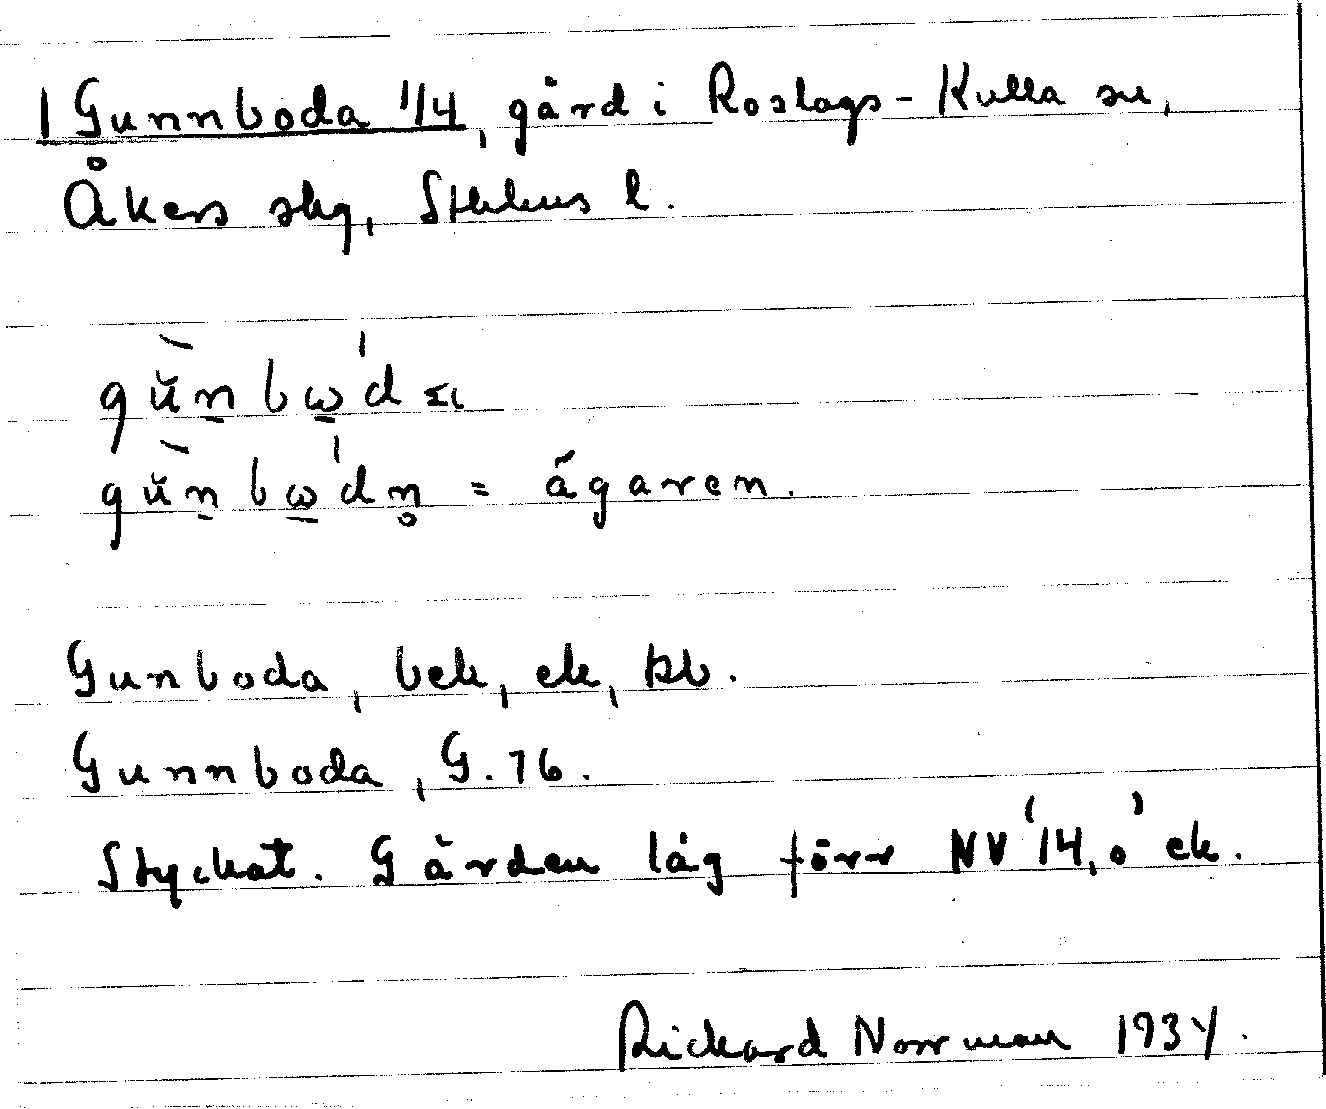 1 Gunnboda 1/4, gård i Roslags-Kulla sn,
Åkers skg, Sthlms l.
gŭ̀n̠bω̠'da
gŭ̀n̠bω̠'dn̥ = ägaren.
Gunboda, bek, ek, kb.
Gunnboda, G.76.
Styckat. Gården låg förr NV '14,0' ek.
Rickard Norrman 1934.